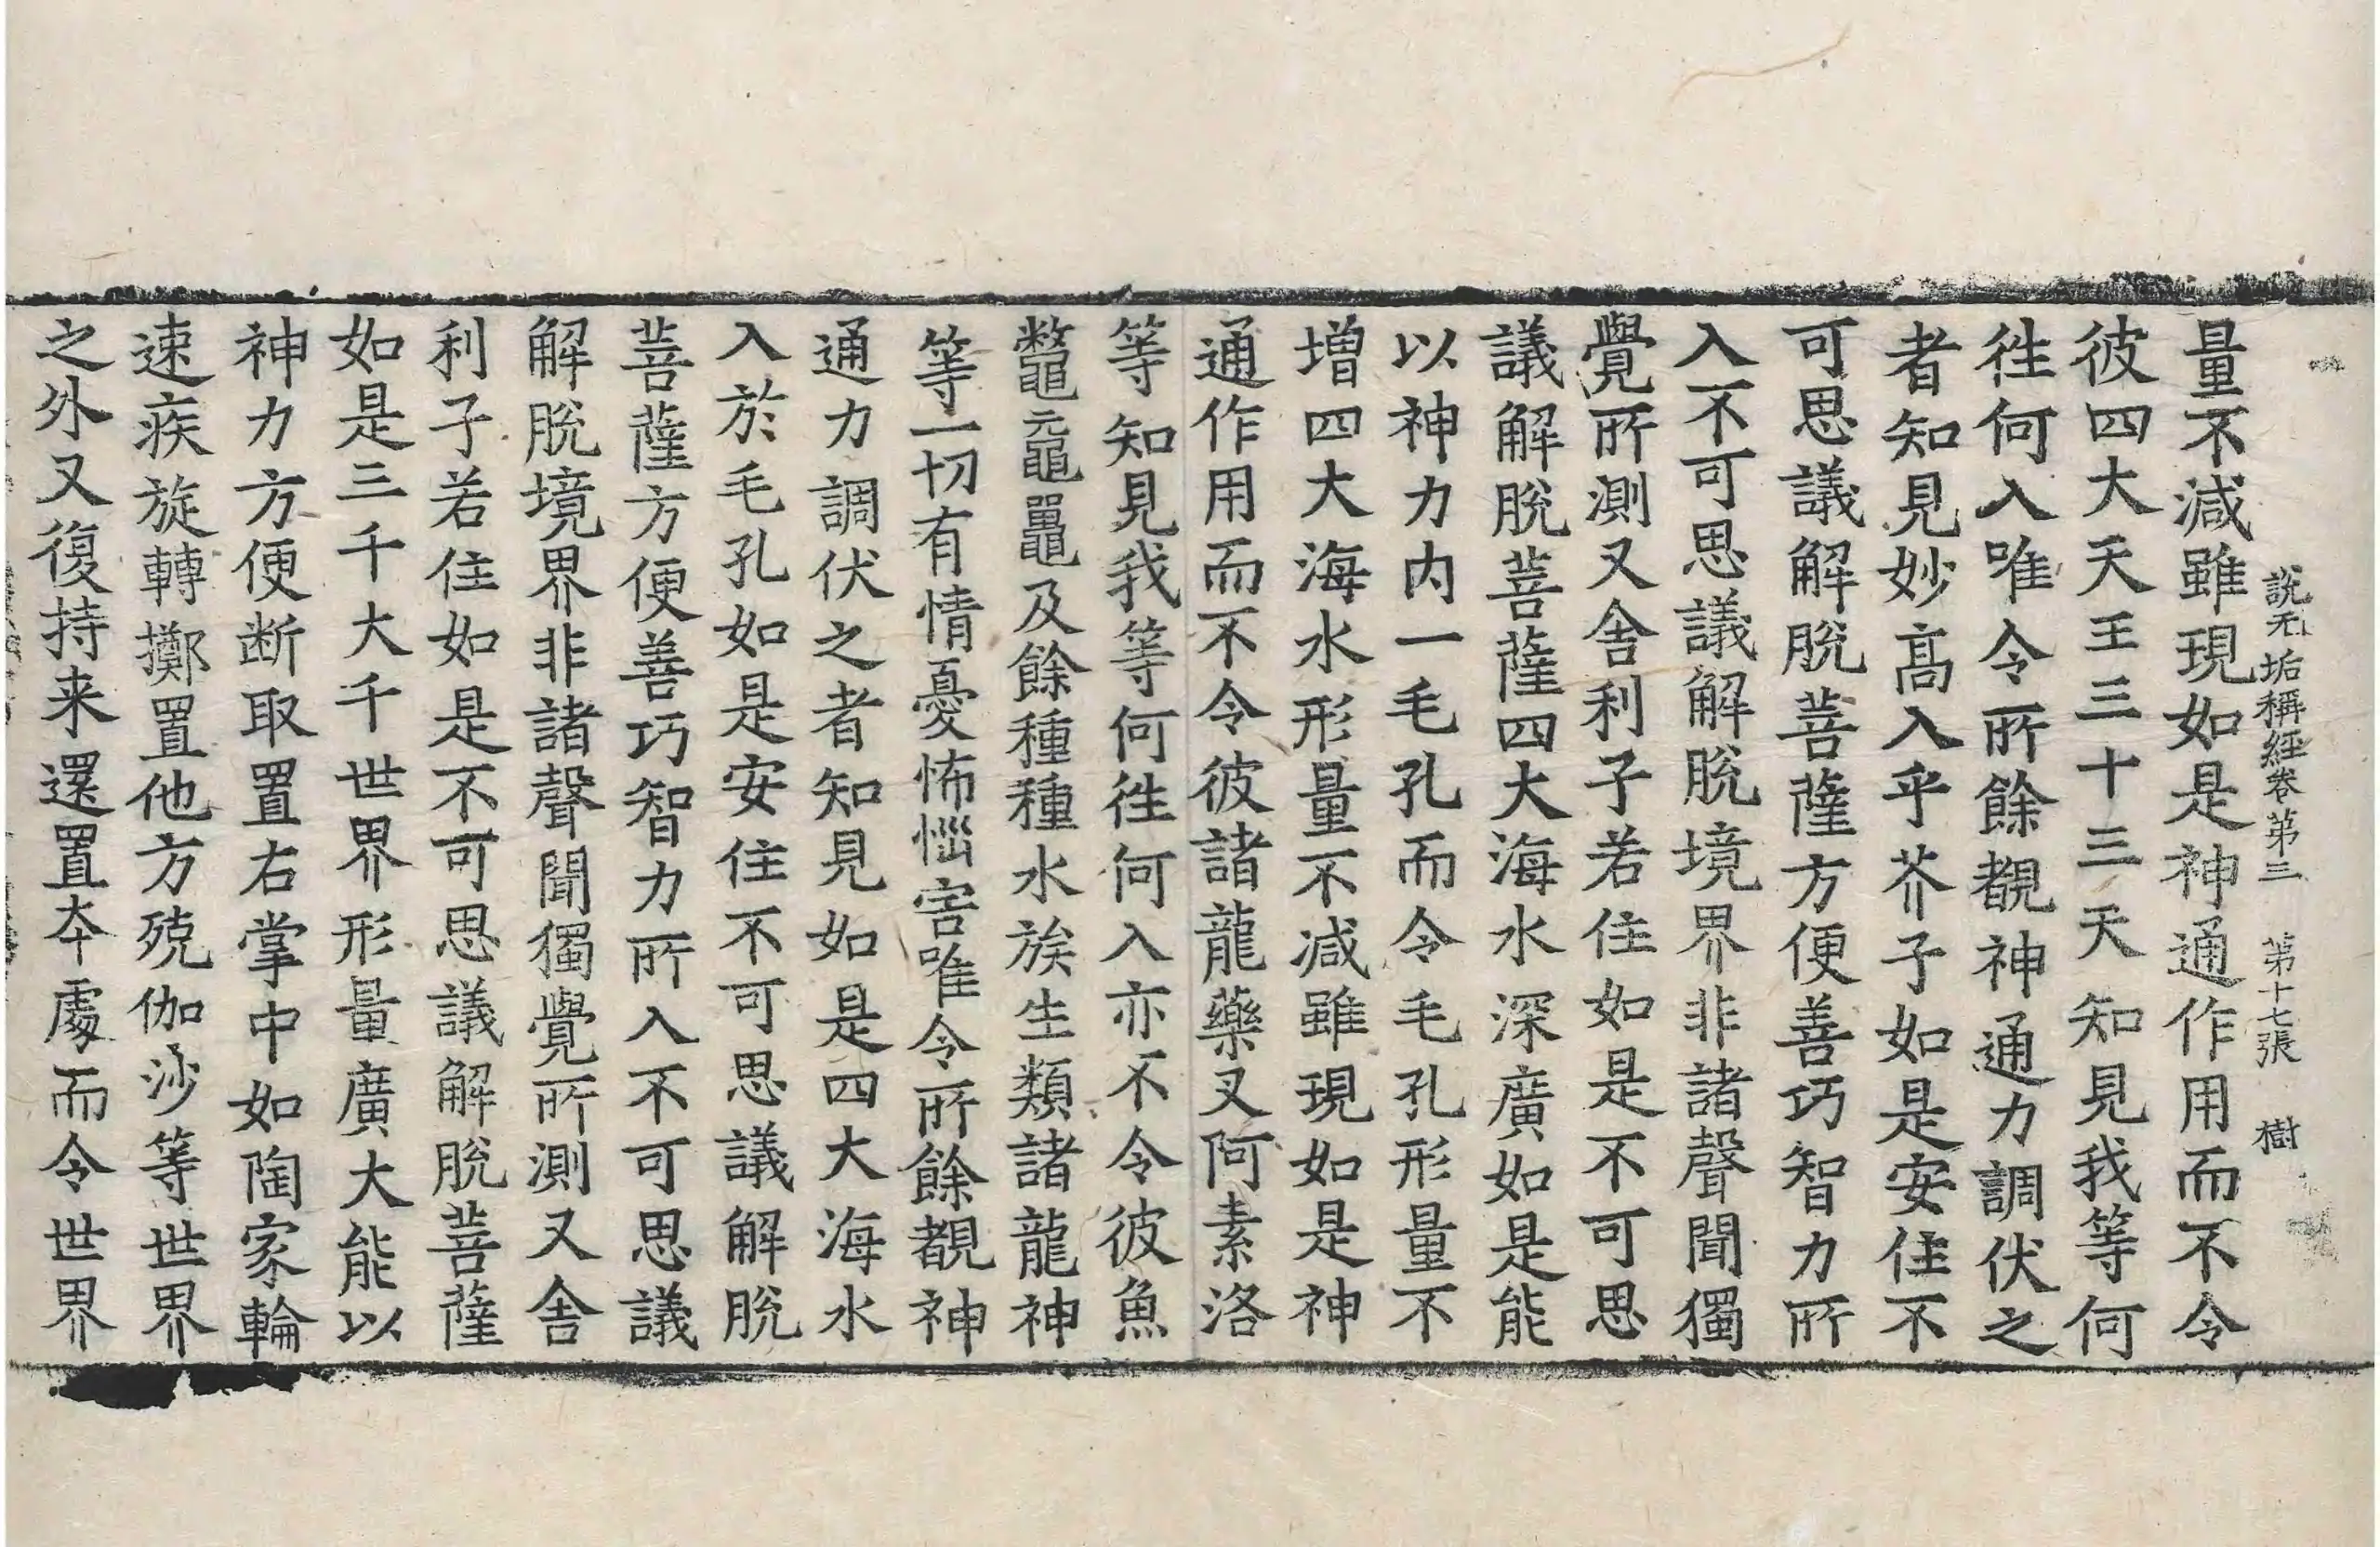 說无垢稱經卷第三 第十七張 樹
量不減雖現如是神通作用而不令
彼四大天王三十三天知見我等何
徃何入唯令所餘覩神通力調伏之
者知見妙高入乎芥子如是安住不
可思議解脫菩薩方便善巧智力所
入不可思議解脫境界非諸聲聞獨
覺所測又舍利子若住如是不可思
議解脫菩薩四大海水深廣如是能
以神力内一毛孔而令毛孔形量不
增四大海水形量不減雖現如是神
通作用而不令彼諸龍藥叉阿素洛
等知見我等何徃何入亦不令彼魚
鼈黿鼉及餘種種水族生類諸龍神
等一切有情憂怖惱害唯令所餘覩神
通力調伏之者知見如是四大海水
入於毛孔如是安住不可思議解脫
菩薩方便善巧智力所入不可思議
解脫境界非諸聲聞獨覺所測又舍
利子若住如是不可思議解脫菩薩
如是三千大千世界形量廣大能以
神力方便断取置右掌中如陶家輪
速疾旋轉擲置他方殑伽沙等世界
之外又復持来還置夲處而令世界